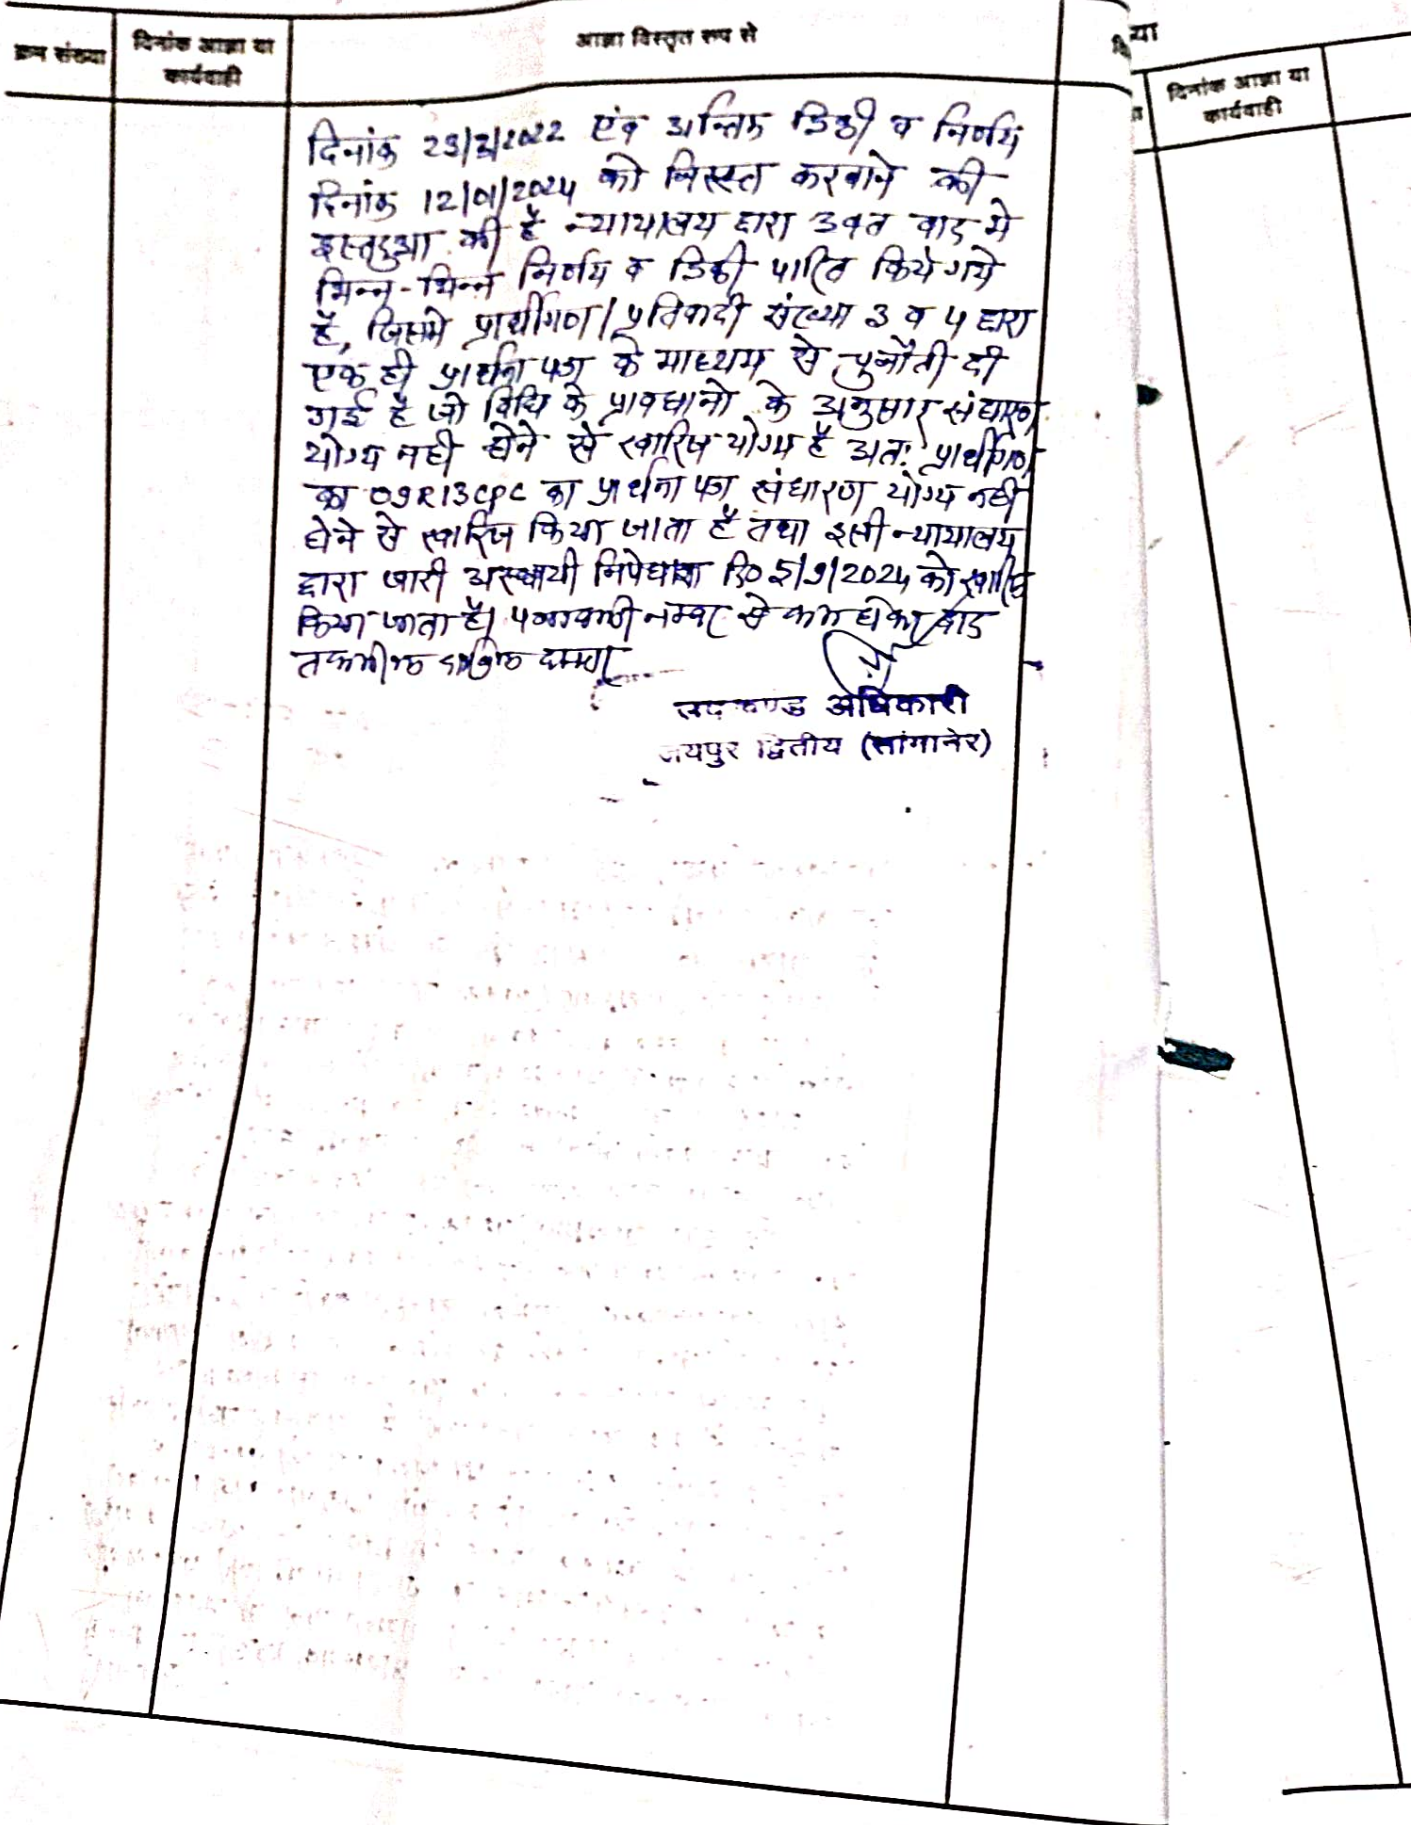 क्रम संख्या
दिनांक आज्ञा या
कार्यवाही
आज्ञा विस्तृत रूप से
दिनांक 23/2/2022 एंव अन्तिम डिक्री व निर्णय
दिनांक 12/01/2024 को निरस्त करवाने की
इस्तदुआ की है न्यायालय द्वारा उक्त वाद मे
भिन्न-भिन्न निर्णय व डिक्री पारित किये गये
है, जिसमे प्रार्थीगण/प्रतिवादी संख्या 3 व 4 द्वारा
एक ही प्रार्थना पत्र के माध्यम से चुनौती दी
गई है जो विधि के प्रावधानो के अनुसार संधारण
योग्य नही होने से खारिज योग्य है अतः प्रार्थीगण
का O9R13CPC का प्रार्थना पत्र संधारण योग्य नही
होने से खारिज किया जाता है तथा इसी न्यायालय
द्वारा जारी अस्थायी निषेधाज्ञा दि० 5/9/2024 को खारिज
किया जाता है। पत्रावली नम्बर से कम होकर बाद
तकमील
उपखण्ड अधिकारी
जयपुर द्वितीय (सांगानेर)
या
दिनांक आज्ञा या
कार्यवाही